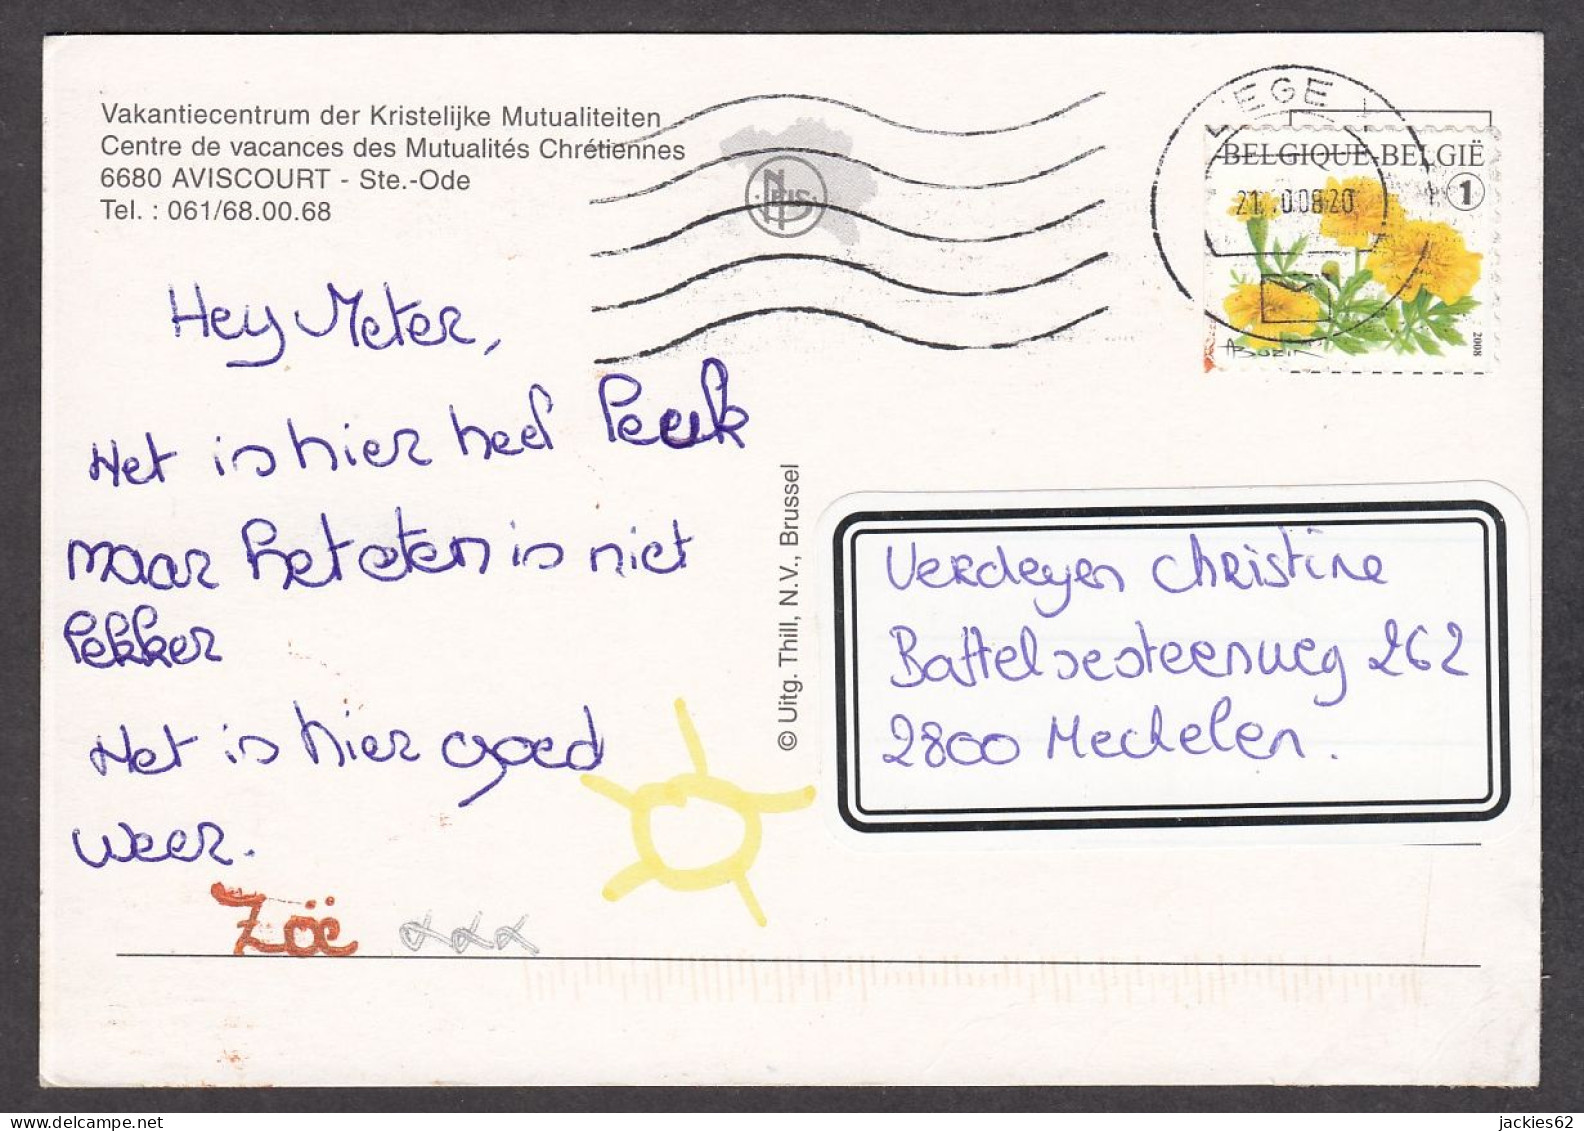 Vakantiecentrum der Kristelijke Mutualiteiten
Centre de vacances des Mutualités Chrétiennes
6680 AVISCOURT - Ste.-Ode
Tel. : 061/68.00.68
BELGIQUE-BELGIË
1
2008
Hey Meter,
Het is hier heel leuk
maar het eten is niet
lekker
Het is hier goed
weer.
Zoë xxx
© Uitg. Thill, N.V., Brussel
Verdeyen Christine
Battelsesteenweg 262
2800 Mechelen.
jackies62